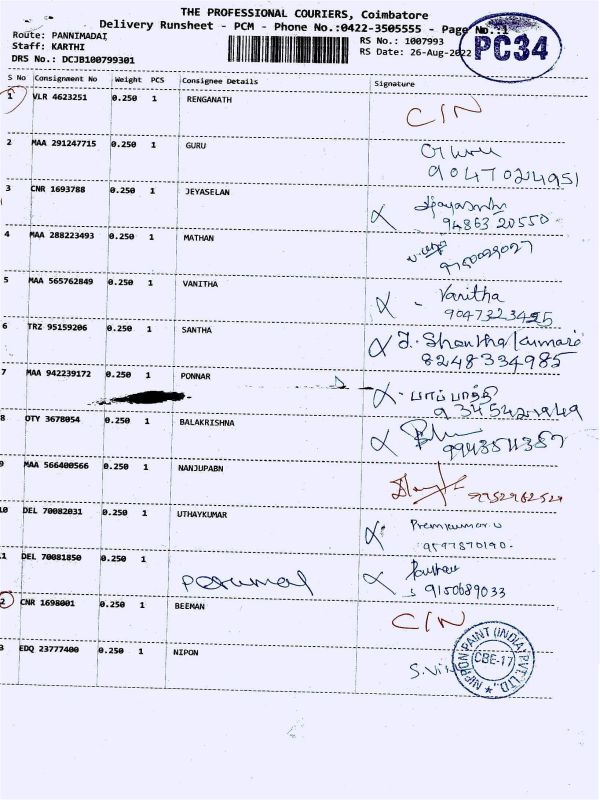 THE PROFESSIONAL COURIERS, Coimbatore
Delivery Runsheet - PCM - Phone No.:0422-3505555 - Page No.:1
Route: PANNIMADAI
Staff: KARTHI
DRS No.: DCJB100799301
RS No.: 1007993
RS Date: 26-Aug-2022
PC34
S No Consignment No Weight PCS Consignee Details Signature
1 VLR 4623251 0.250 1 RENGANATH C/N
2 MAA 291247715 0.250 1 GURU
3 CNR 1693788 0.250 1 JEYASELAN
94863 20550
4 MAA 288223493 0.250 1 MATHAN
5 MAA 565762849 0.250 1 VANITHA Vanitha
6 TRZ 95159206 0.250 1 SANTHA J. Shanthakumari
8248334985
7 MAA 942239172 0.250 1 PONNAR
8 OTY 3678054 0.250 1 BALAKRISHNA
9 MAA 566400566 0.250 1 NANJUPABN
10 DEL 70082031 0.250 1 UTHAYKUMAR Premkumar.
9597870190.
11 DEL 70081850 0.250 1 Perumal
9150689033
12 CNR 1698001 0.250 1 BEEMAN C/N
13 EDQ 23777400 0.250 1 NIPON
NIPPON PAINT (INDIA) PVT. LTD.,
CBE-17